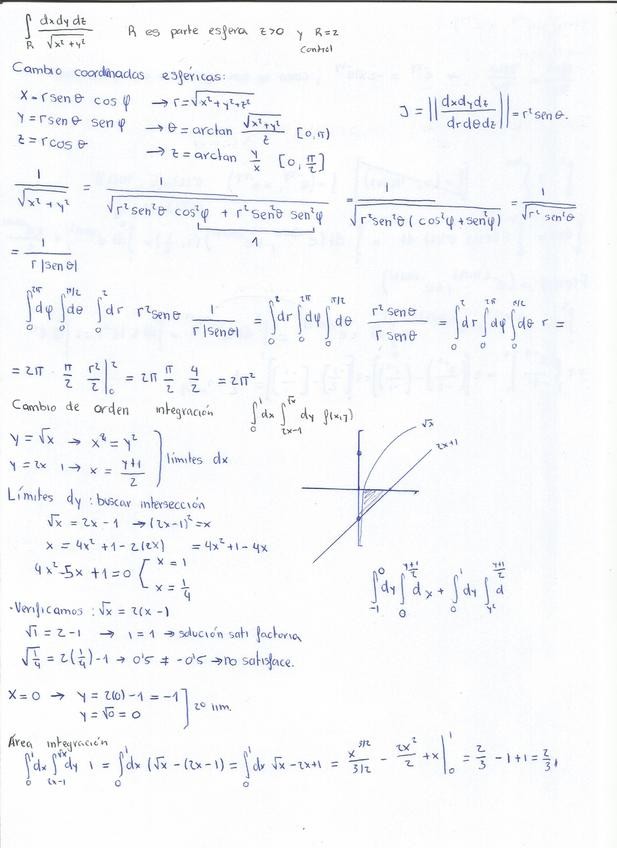 ∫_R dxdydz / √(x²+y²)   R es parte esfera z>0 y R=2
Control
Cambio coordinadas esféricas:
X = r senθ cosφ → r = √(x²+y²+z²)
Y = r senθ senφ → θ = arctan √(x²+y²)/z [0,π)
z = r cosθ → z = arctan y/x [0, π/2]
J = || dxdydz / drdθdz || = r² senθ.
1/√(x²+y²) = 1/√(r²sen²θ cos²φ + r²sen²θ sen²φ) = 1/√(r²sen²θ (cos²φ+sen²φ)) = 1/√(r² sen²θ)
1
= 1/(r |senθ|)
∫₀^2π dφ ∫₀^π/2 dθ ∫₀^2 dr r² senθ 1/(r|senθ|) = ∫₀^2 dr ∫₀^2π dφ ∫₀^π/2 dθ (r² senθ)/(r senθ) = ∫₀^2 dr ∫₀^2π dφ ∫₀^π/2 dθ r =
= 2π · π/2 r²/2 |₀² = 2π π/2 4/2 = 2π²
Cambio de orden integración ∫₀^1 dx ∫_{2x-1}^{√x} dy f(x,y)
y = √x → x = y²
y = 2x 1 → x = (y+1)/2
límites dx
√x
2x+1
Límites dy : buscar intersección
√x = 2x - 1 → (2x-1)² = x
x = 4x² + 1 - 2(2x) = 4x² + 1 - 4x
4x² - 5x + 1 = 0 { x = 1
x = 1/4
∫₋₁^0 dy ∫₀^{(y+1)/2} dx + ∫₀^1 dy ∫_{y²}^{(y+1)/2} d
· Verificamos : √x = 2(x - 1)
√1 = 2 - 1 → 1 = 1 → solución sati factoria
√(1/4) = 2(1/4) - 1 → 0'5 ≠ -0'5 → no satisface.
X = 0 → y = 2(0) - 1 = -1
y = √0 = 0
] 20 lim.
Área integración
∫₀^1 dx ∫_{2x-1}^{√x} dy 1 = ∫₀^1 dx (√x - (2x-1) = ∫₀^1 dx √x - 2x + 1 = x^{3/2}/(3/2) - 2x²/2 + x |₀^1 = 2/3 - 1 + 1 = 2/3